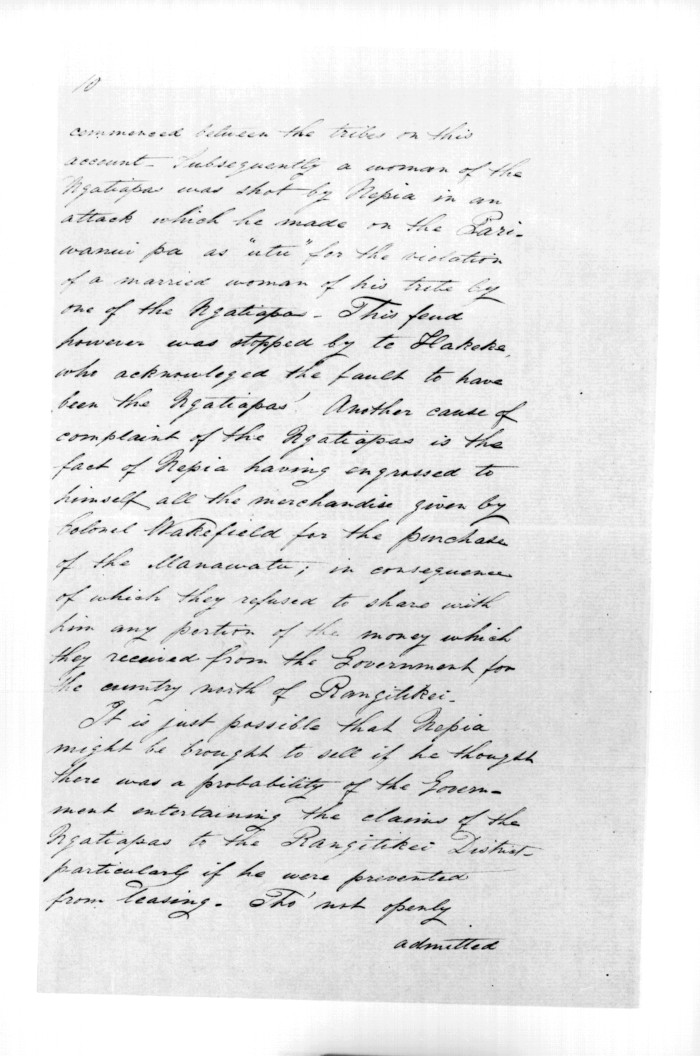 10
commenced between the tribes on this
account - Subsequently a woman of the
Ngatiapas was shot by Nepia in an
attack which he made on the Pari-
wanui pa as "utu" for the violation
of a married woman of his tribe by
one of the Ngatiapas - This feud
however was stopped by te Hakeke,
who acknowleged the fault to have
been the Ngatiapas'. Another cause of
complaint of the Ngatiapas is the
fact of Nepia having engrossed to
himself all the merchandise given by
Colonel Wakefield for the purchase
of the Manawatu; in consequence
of which they refused to share with
him any portion of the money which
they received from the Government for
the country north of Rangitikei -
It is just possible that Nepia
might be brought to sell if he thought
there was a probability of the Govern-
ment entertaining the claims of the
Ngatiapas to the Rangitikei District -
particularly if he were prevented
from leasing - Tho' not openly
admitted